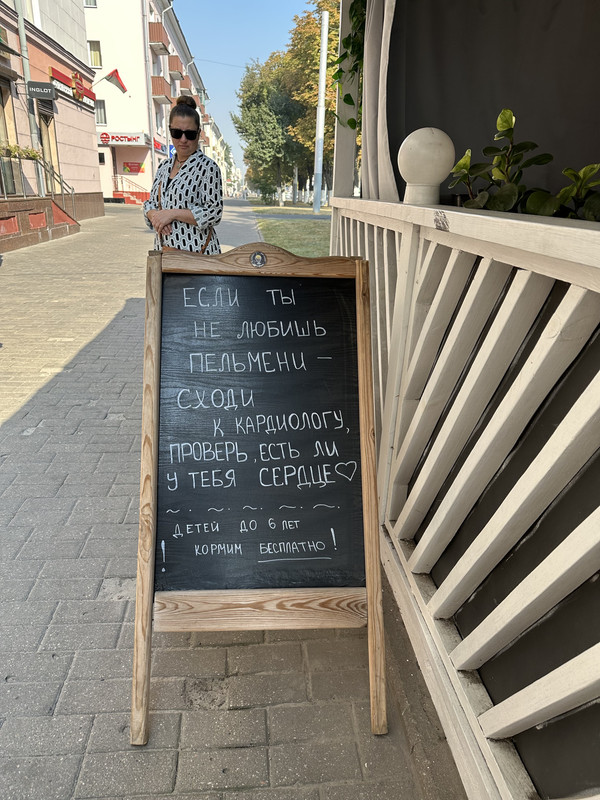 INGLOT
РОСТЫНГ
ЕСЛИ ТЫ
НЕ ЛЮБИШЬ
ПЕЛЬМЕНИ –
СХОДИ
К КАРДИОЛОГУ,
ПРОВЕРЬ, ЕСТЬ ЛИ
У ТЕБЯ СЕРДЦЕ♡
~ . ~ . ~ . ~ . ~ .
ДЕТЕЙ ДО 6 ЛЕТ
! КОРМИМ БЕСПЛАТНО !